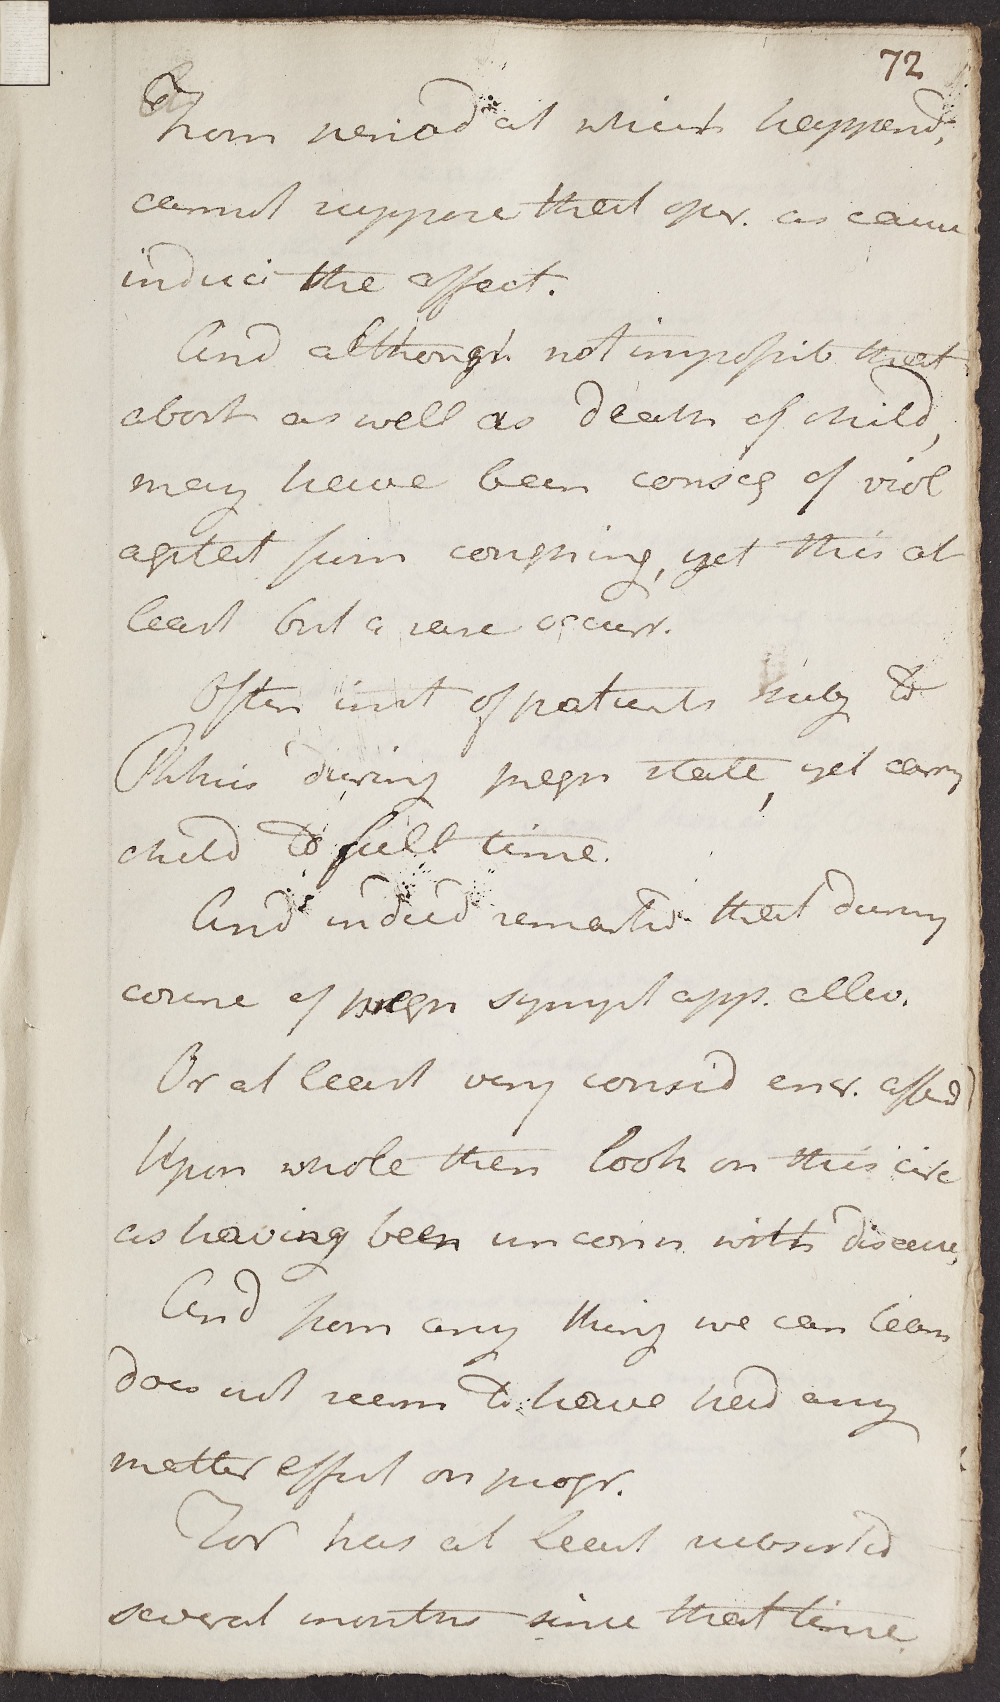 72
From period at which happend,
cannot suppose that oper. as cause
induci the effect.
And although not impossib that
abort as well as death of child,
may have been conseq of viol
agitat from coughing, yet this at
least but a rare occurr.
Often inst of patients subj to
Pthisis during pregn state, yet carry
child to full time.
And indeed remarked that during
course of pregn sympt app. allev.
Or at least very consid ener. affed
Upon whole then look on this circ
as having been unconn with disease,
And from any thing we can learn
does not seem to have had any
matter effect on progr.
For has at least subsisted
several months since that time